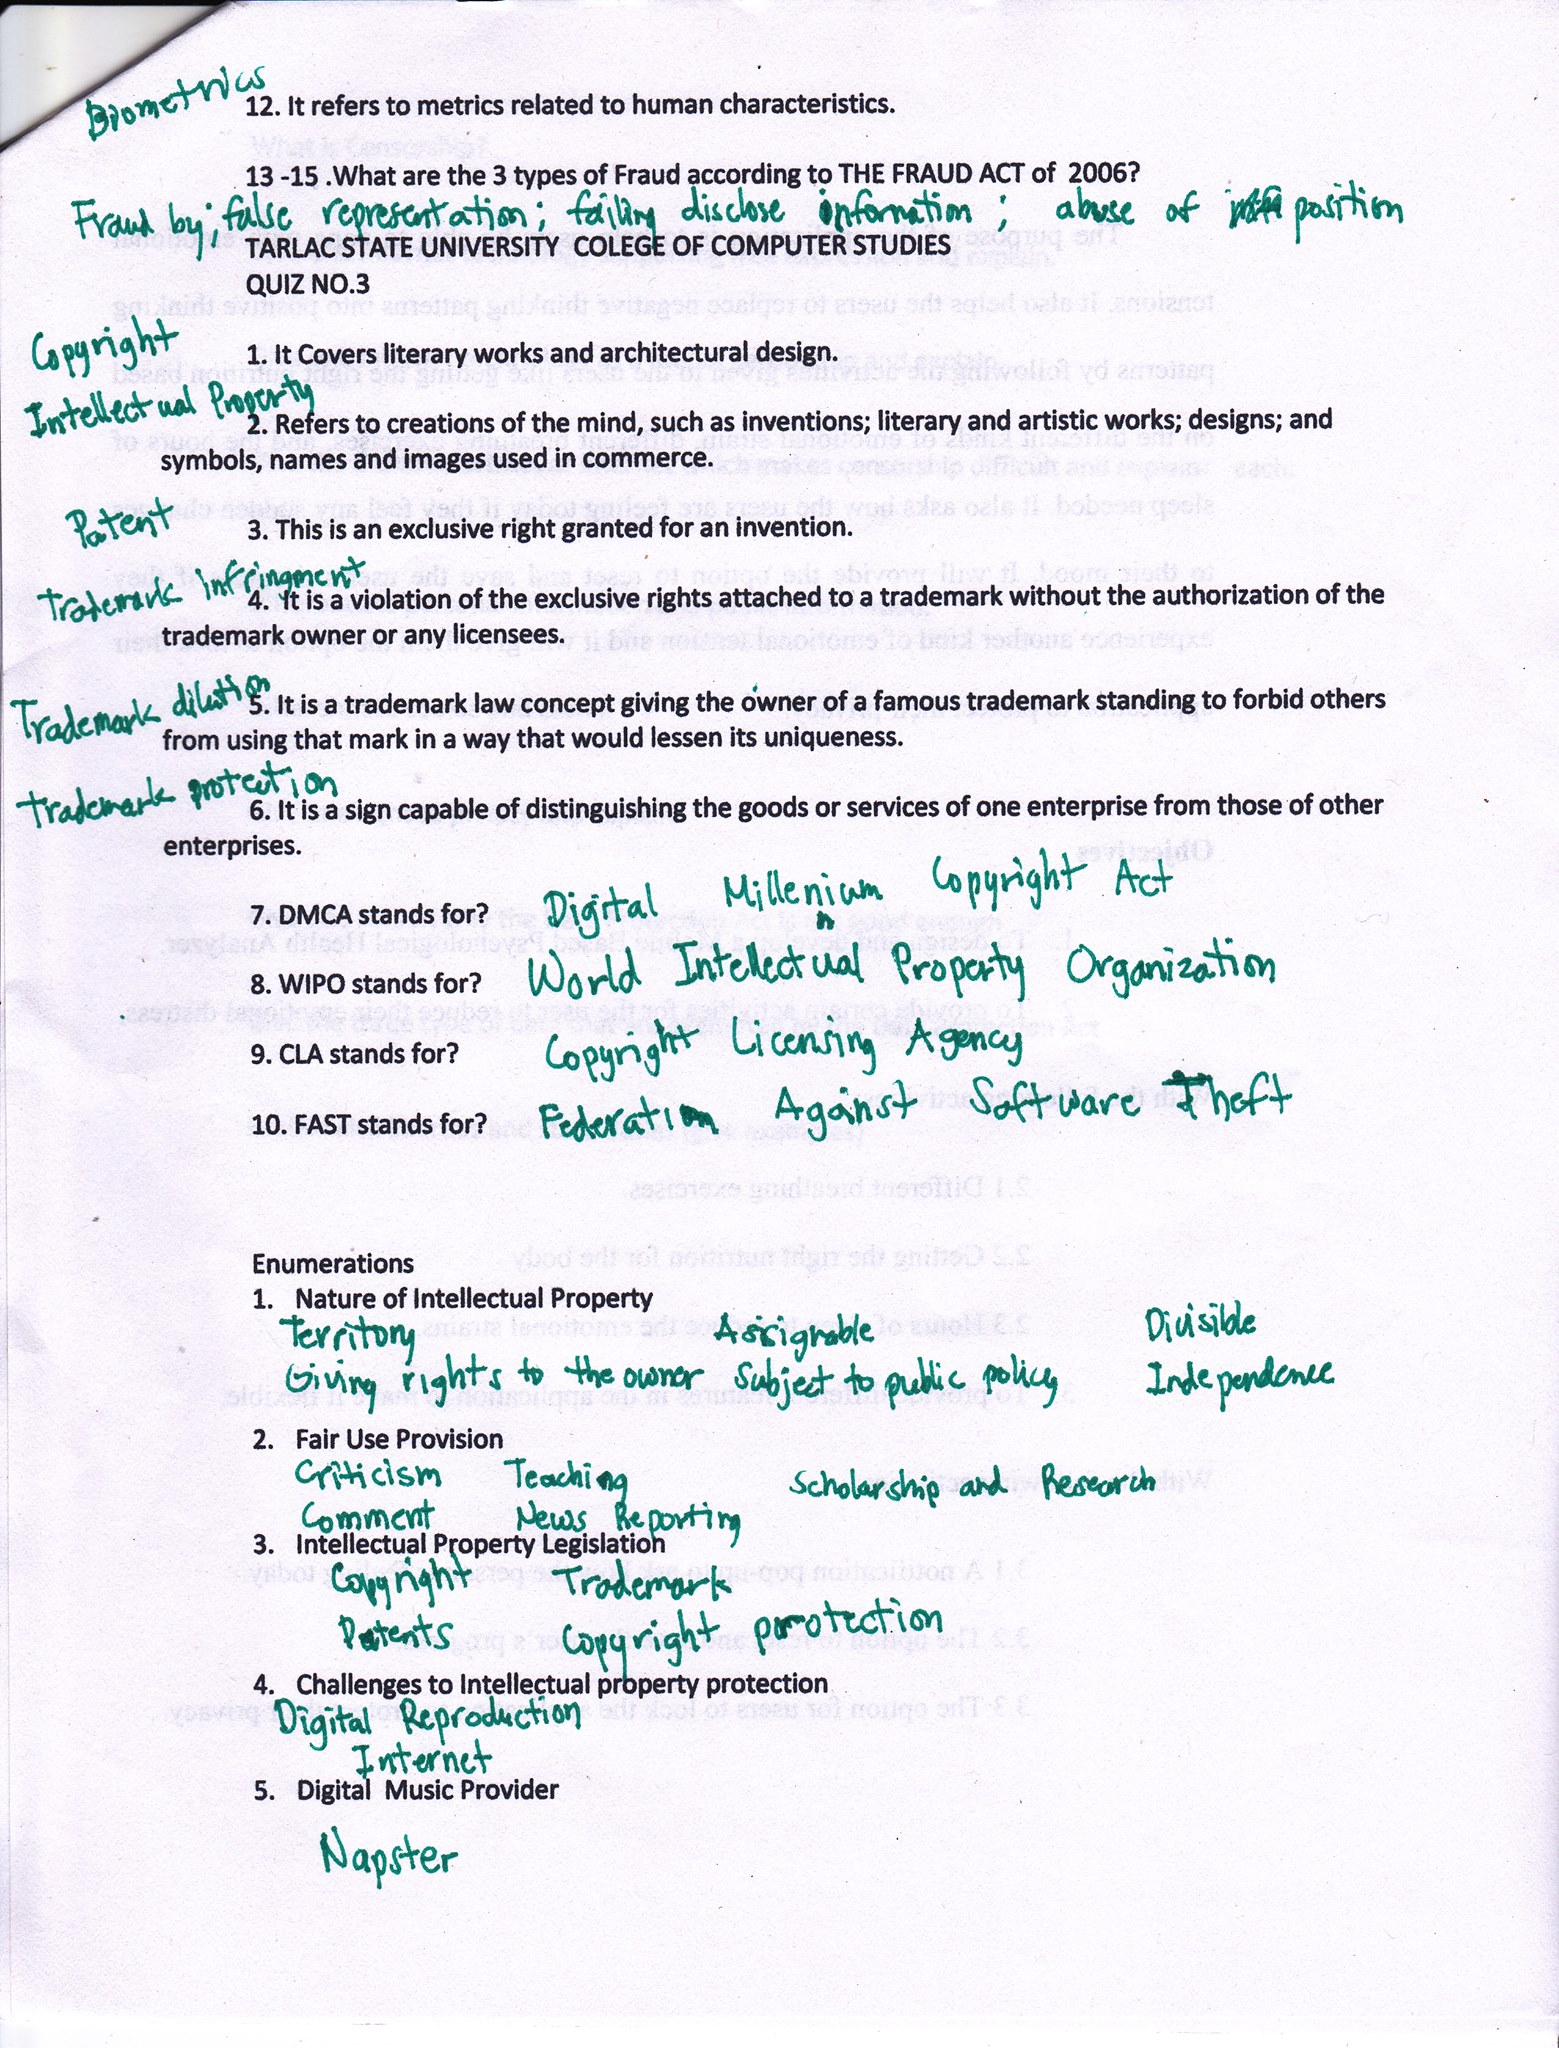 Biometrics
12. It refers to metrics related to human characteristics.
13 -15 .What are the 3 types of Fraud according to THE FRAUD ACT of 2006?
Fraud by; false representation; failing disclose information; abuse of position
TARLAC STATE UNIVERSITY COLEGE OF COMPUTER STUDIES
QUIZ NO.3
Copyright
1. It Covers literary works and architectural design.
Intellectual Property
2. Refers to creations of the mind, such as inventions; literary and artistic works; designs; and
symbols, names and images used in commerce.
Patent
3. This is an exclusive right granted for an invention.
Trademark infringment
4. It is a violation of the exclusive rights attached to a trademark without the authorization of the
trademark owner or any licensees.
Trademark dilution
5. It is a trademark law concept giving the owner of a famous trademark standing to forbid others
from using that mark in a way that would lessen its uniqueness.
Trademark protection
6. It is a sign capable of distinguishing the goods or services of one enterprise from those of other
enterprises.
7. DMCA stands for? Digital Millennium Copyright Act
8. WIPO stands for? World Intellectual Property Organization
9. CLA stands for? Copyright Licensing Agency
10. FAST stands for? Federation Against Software Theft
Enumerations
1. Nature of Intellectual Property
Territory Assignable Divisible
Giving rights to the owner Subject to public policy Independence
2. Fair Use Provision
Criticism Teaching Scholarship and Research
Comment News Reporting
3. Intellectual Property Legislation
Copyright Trademark
Patents Copyright protection
4. Challenges to Intellectual property protection
Digital Reproduction
Internet
5. Digital Music Provider
Napster